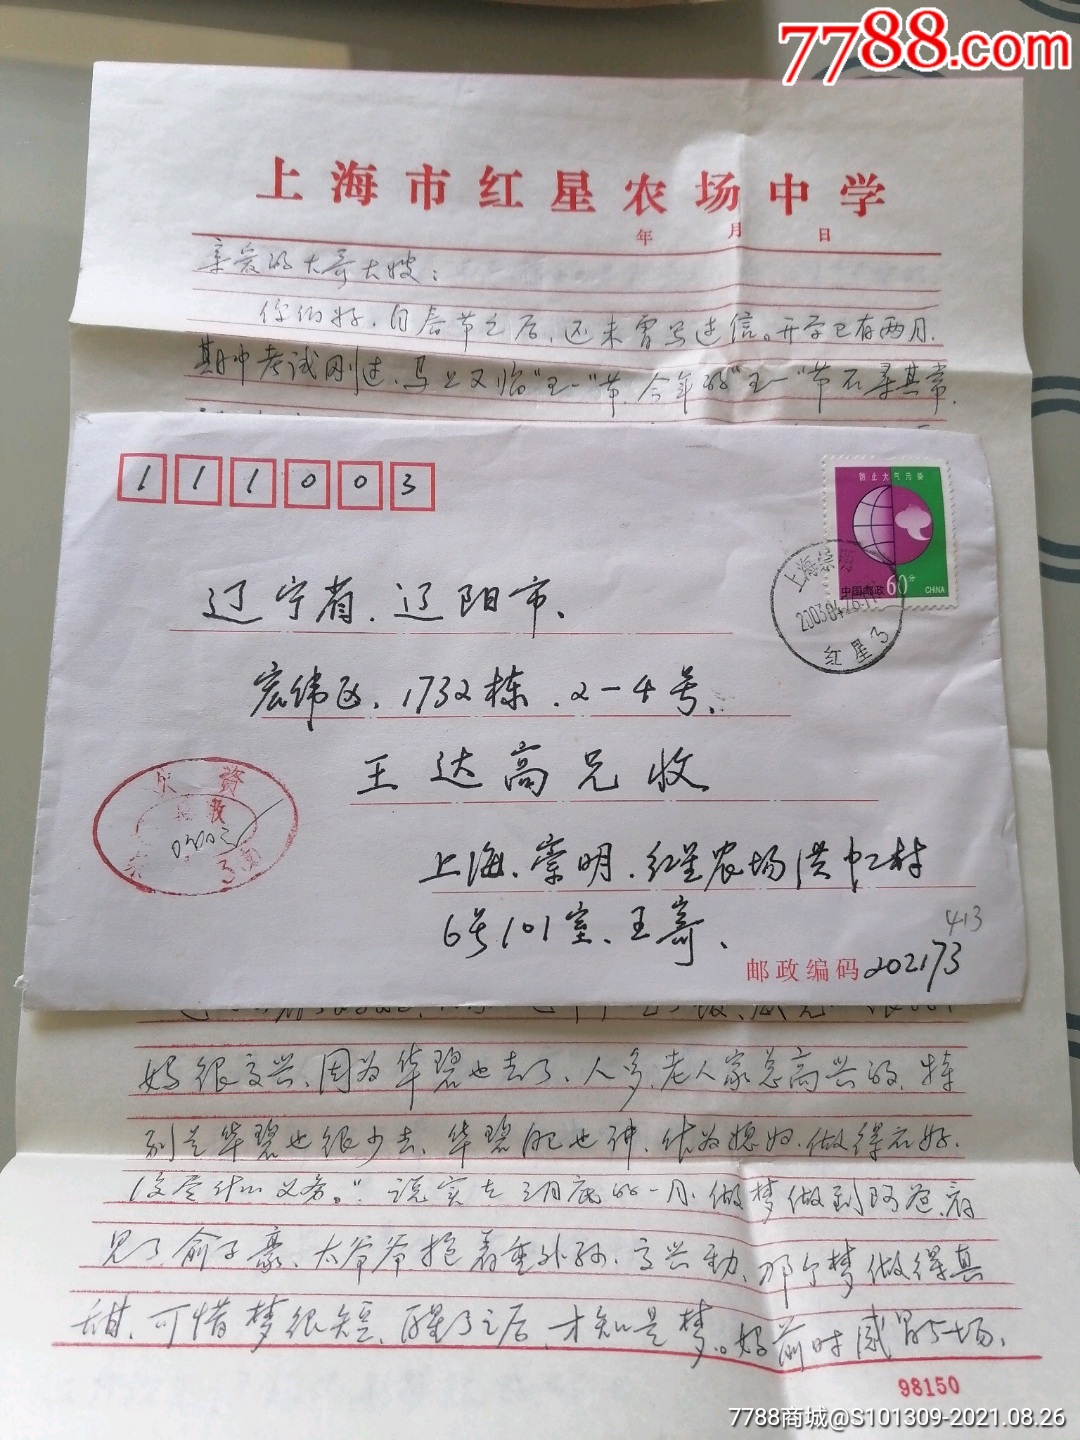 7788.com
上海市红星农场中学
年 月 日
亲爱的大哥大嫂：
你们好，自春节之后，还未曾写过信。开学已有两月，
期中考试刚过，马上又临“五一”节，今年的“五一”节不寻其常，
111003
防止大气污染
中国邮政 60分 CHINA
上海崇明
2003.04.26.11
红星3
辽宁省、辽阳市、
宏伟区、1732栋、2-4号、
王达高兄收
欠資
上海、崇明、红星农场洪中二村
6号101室、王寄、
413
邮政编码 202173
妈很高兴，因为华碧也去了、人多、老人家总高兴的，特
别是华碧也很少去、华碧自己也讲，作为媳妇，做得不好，
没尽什么义务。”说实在三月底的一月，做梦做到阿爸，看
见了俞子豪、太爷爷抱着重外孙，高兴动、那个梦做得真
甜，可惜梦很短、醒了之后，才知是梦。妈前时感冒的一场，
98150
7788商城@S101309-2021.08.26